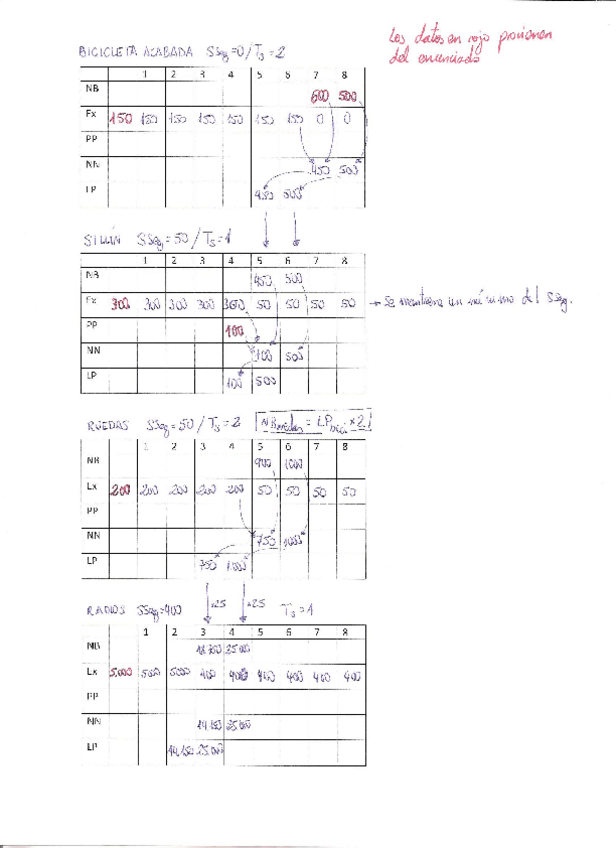 Los datos en rojo provienen
del enunciado
BICICLETA ACABADA SSeg=0/Ts=2
1 2 3 4 5 6 7 8
NB 600 500
Ex 150 150 150 150 150 150 150 0 0
PP
NN 450 500
LP 450 500
SILLÍN SSeg=50/Ts=1
1 2 3 4 5 6 7 8
NB 450 500
Ex 300 300 300 300 300 50 50 50 50 → Se mantiene un mínimo del SSeg.
PP 100
NN 100 500
LP 100 500
RUEDAS SSeg=50/Ts=2 NBruedas = LPbici × 2
1 2 3 4 5 6 7 8
NB 900 1000
Ex 200 200 200 200 200 50 50 50 50
PP
NN 750 1000
LP 750 1000
RADIOS SSeg=400 x25 x25 Ts=1
1 2 3 4 5 6 7 8
NB 18.750 25.000
Ex 5.000 5000 5000 400 400 400 400 400 400
PP
NN 14.150 25.000
LP 14.150 25.000